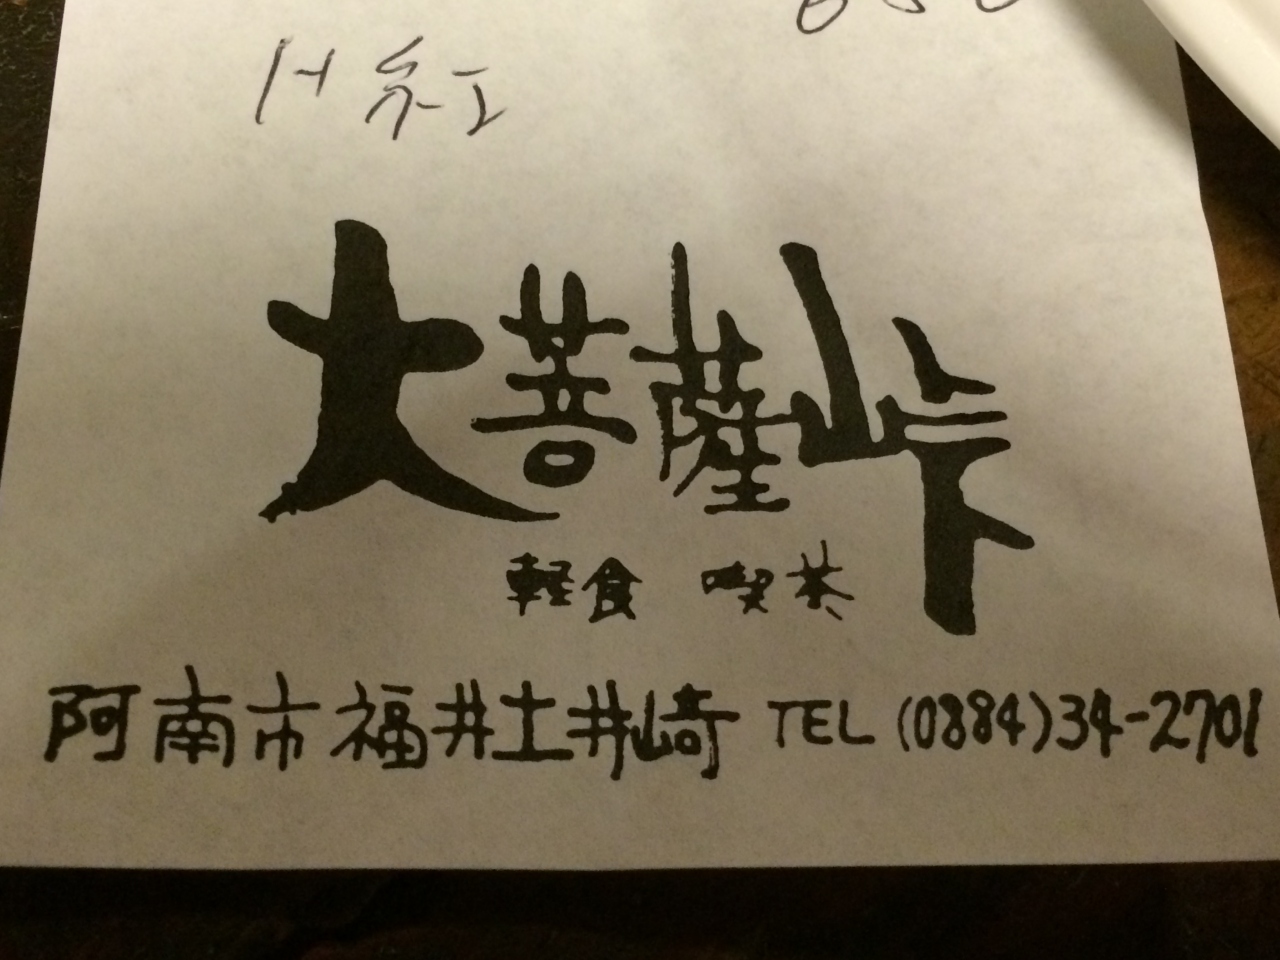 H 紅
大菩薩峠
軽食 喫茶
阿南市福井土井崎 TEL (0884)34-2701